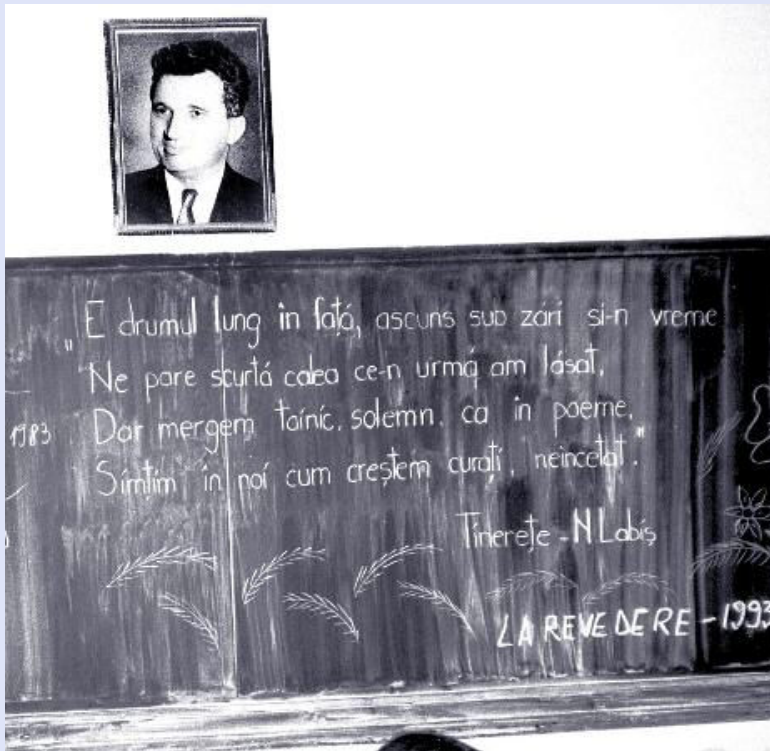 „E drumul lung în față, ascuns sub zări si-n vreme
Ne pare scurtă calea ce-n urmă am lăsat,
Dar mergem tainic, solemn, ca in poeme,
Simțim in noi cum creștem curați, neincetat."
Tinerețe - N Labiș
1983
LA REVEDERE - 1993